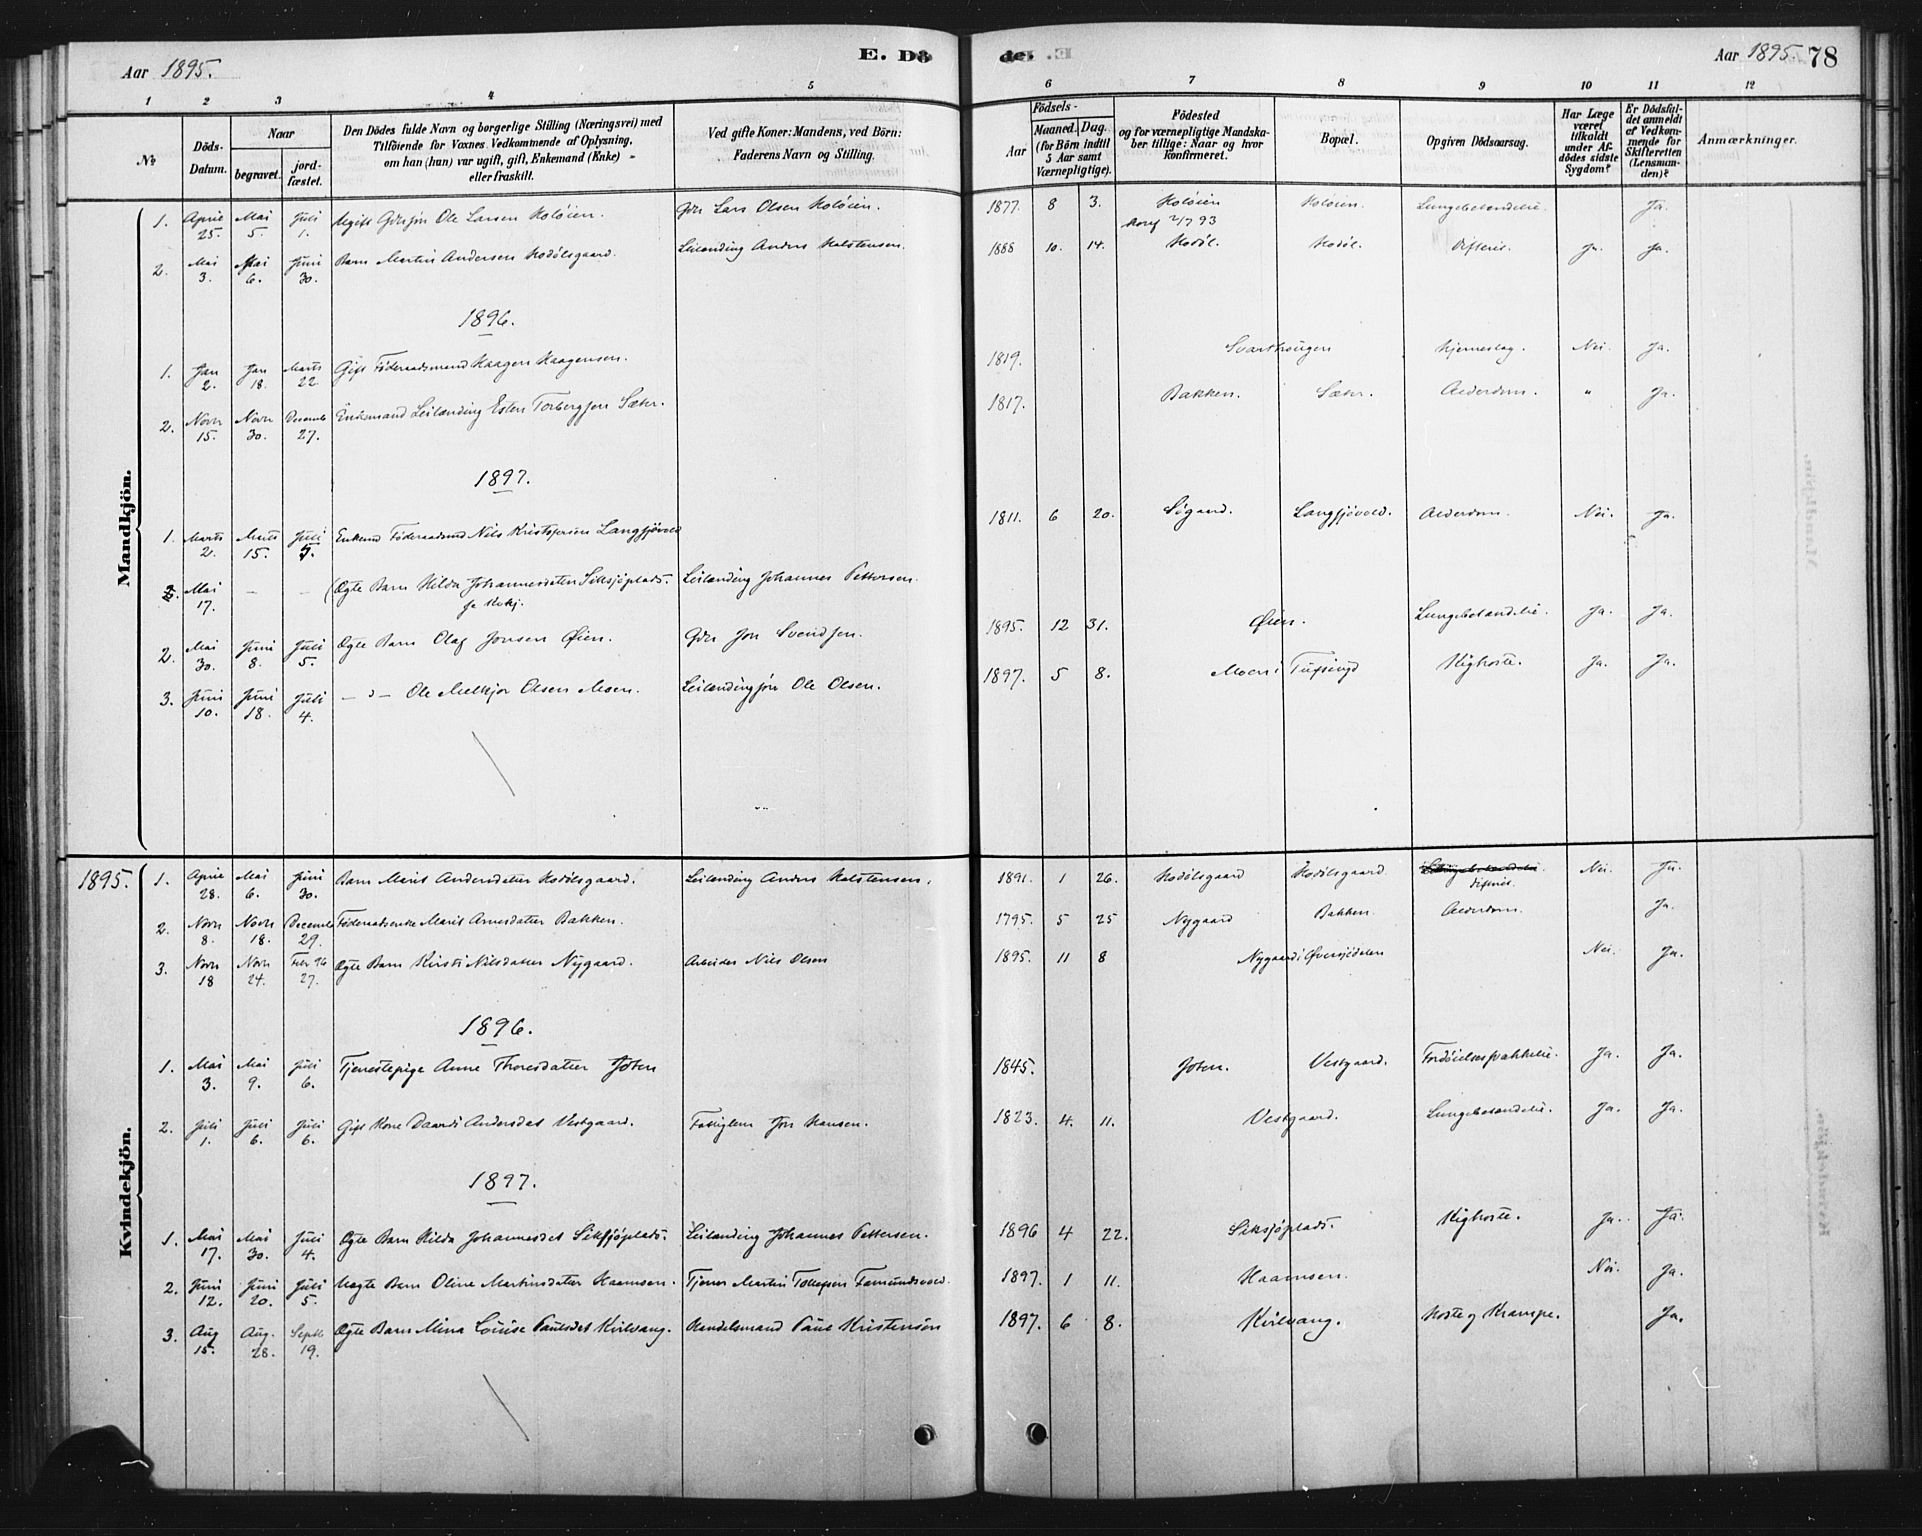 Aar 1895.
E. Dö
de.
Aar 1895. 78
1 2 3 4 5 6 7 8 9 10 11 12
No
Döds-Datum.
Naar
begravet.
jordfæstet.
Den Dödes fulde Navn og borgerlige Stilling (Næringsvei) med
Tilföiende for Voxnes Vedkommende af Oplysning,
om han (hun) var ugift, gift, Enkemand (Enke)
eller fraskilt.
Ved gifte Koner: Mandens, ved Börn:
Faderens Navn og Stilling.
Födsels-
Aar
Maaned. Dag.
(for Börn indtil
5 Aar samt
Værnepligtige).
Födested
og for værnepligtige Mandskaber tillige: Naar og hvor
konfirmeret.
Bopæl.
Opgiven Dödsaarsag.
Har Læge
været
tilkaldt
under Afdödes sidste
Sygdom?
Er Dödsfaldet anmeldt
af Vedkommende for
Skifteretten
(Lensmanden)?
Anmærkninger.
Mandkjön.
1. April 25. Mai 5. Juli 1. Ugift Ole Larsen Koløien. Lars Olsen Koløien. 1877. 8 3. Koløien 2/7 93 Koløien. Lungebetændelse. Ja.
2. Mai 3. Mai 6. Juni 30. Barn Martin Andersen Hodølsgaard. Leilænding Anders Halstensen. 1888 10. 14. Hodøl. Hodøl. Difterit. Ja. Ja.
1896.
1. Jan 2. Jan 18. Marts 22. Gift Føderaadsmand Haagen Haagensen. 1819. Svarthougen Hjerneslag. Nei. Ja.
2. Novr 15. Novr 30. Decembr 27. Enkemand Leilænding Esten Torbergsen Sæter. 1817. Bakken. Sæter. Alderdom. " Ja.
1897.
1. Marts 2. Marts 15. Juli 5. Enkemd Føderaadsmd Nils Kristophersen Langsjøvold 1811. 6 20. Søgaard. Langsjøvold. Alderdom. Nei. Ja.
Mai 17. – – (Ægte Barn Hilda Johannesdatter Siksjøplads. Leilænding Johannes Pettersen.
se Kvkj.
2. Mai 30. Juni 8. Juli 5. Ægte Barn Olaf Jonsen Øien. Jon Svendsen. 1895. 12 31. Øien. Lungebetændelse. Ja. Ja.
3. Juni 10. Juni 18. Juli 4. – " – Ole Melkjor Olsen Moen. Ole Olsen. 1897. 5 8. Moen i Tufsingd Kighoste. Ja. Ja.
Kvindekjön.
1895. 1. April 28. Mai 6. Juni 30. Barn Marit Andersdatter Hodølsgaard. Leilænding Anders Halstensen. 1891. 1 26. Hodølsgaard Hodølsgaard Lungebetændelse. difterit. Nei. Ja.
2. Novr 8. Novr 18. Decembr 29. Føderaadsenke Marit Arnesdatter Bakken. 1795. 5 25 Nygaard Bakken. Alderdom. Ja.
3. Novr 18 Novr 24. Febr 96 27. Ægte Barn Kirsti Nilsdatter Nygaard. Arbeider Nils Olsen 1895. 11 8 Nygaard i Øversjødalen Nei. Ja.
1896.
1. Mai 3. Mai 9. Juli 6. Tjenestepige Anne Thoresdatter Joten 1845. Joten. Vestgaard. Ja. Ja.
2. Juli 1. Juli 6. Juli 6. Gift Kone Daardi Andersdat Vestgaard. Fattiglem Jon Hansen. 1823. 4. 11. Vestgaard. Lungebetændelse. Ja. Ja.
1897.
1. Mai 17. Mai 30. Juli 4. Ægte Barn Hilda Johannesdat Siksjøplads. Leilænding Johannes Pettersen. 1896 4 22. Siksjøplads. Kighoste. Ja. Ja.
2. Juni 12. Juni 20. Juli 5. Uægte Barn Oline Martinsdatter Haamoen. Tjener Martin Tollefsen Fæmundsvold. 1897. 1 11. Haamoen. Nei. Ja.
3. Aug 15. Aug. 28. Septbr 19. Ægte Barn Mina Louise Paulsdat Kvilvang. Handelsmand Paul Kristensen 1897. 6 8. Kvilvang. Hoste og Krampe. Ja.